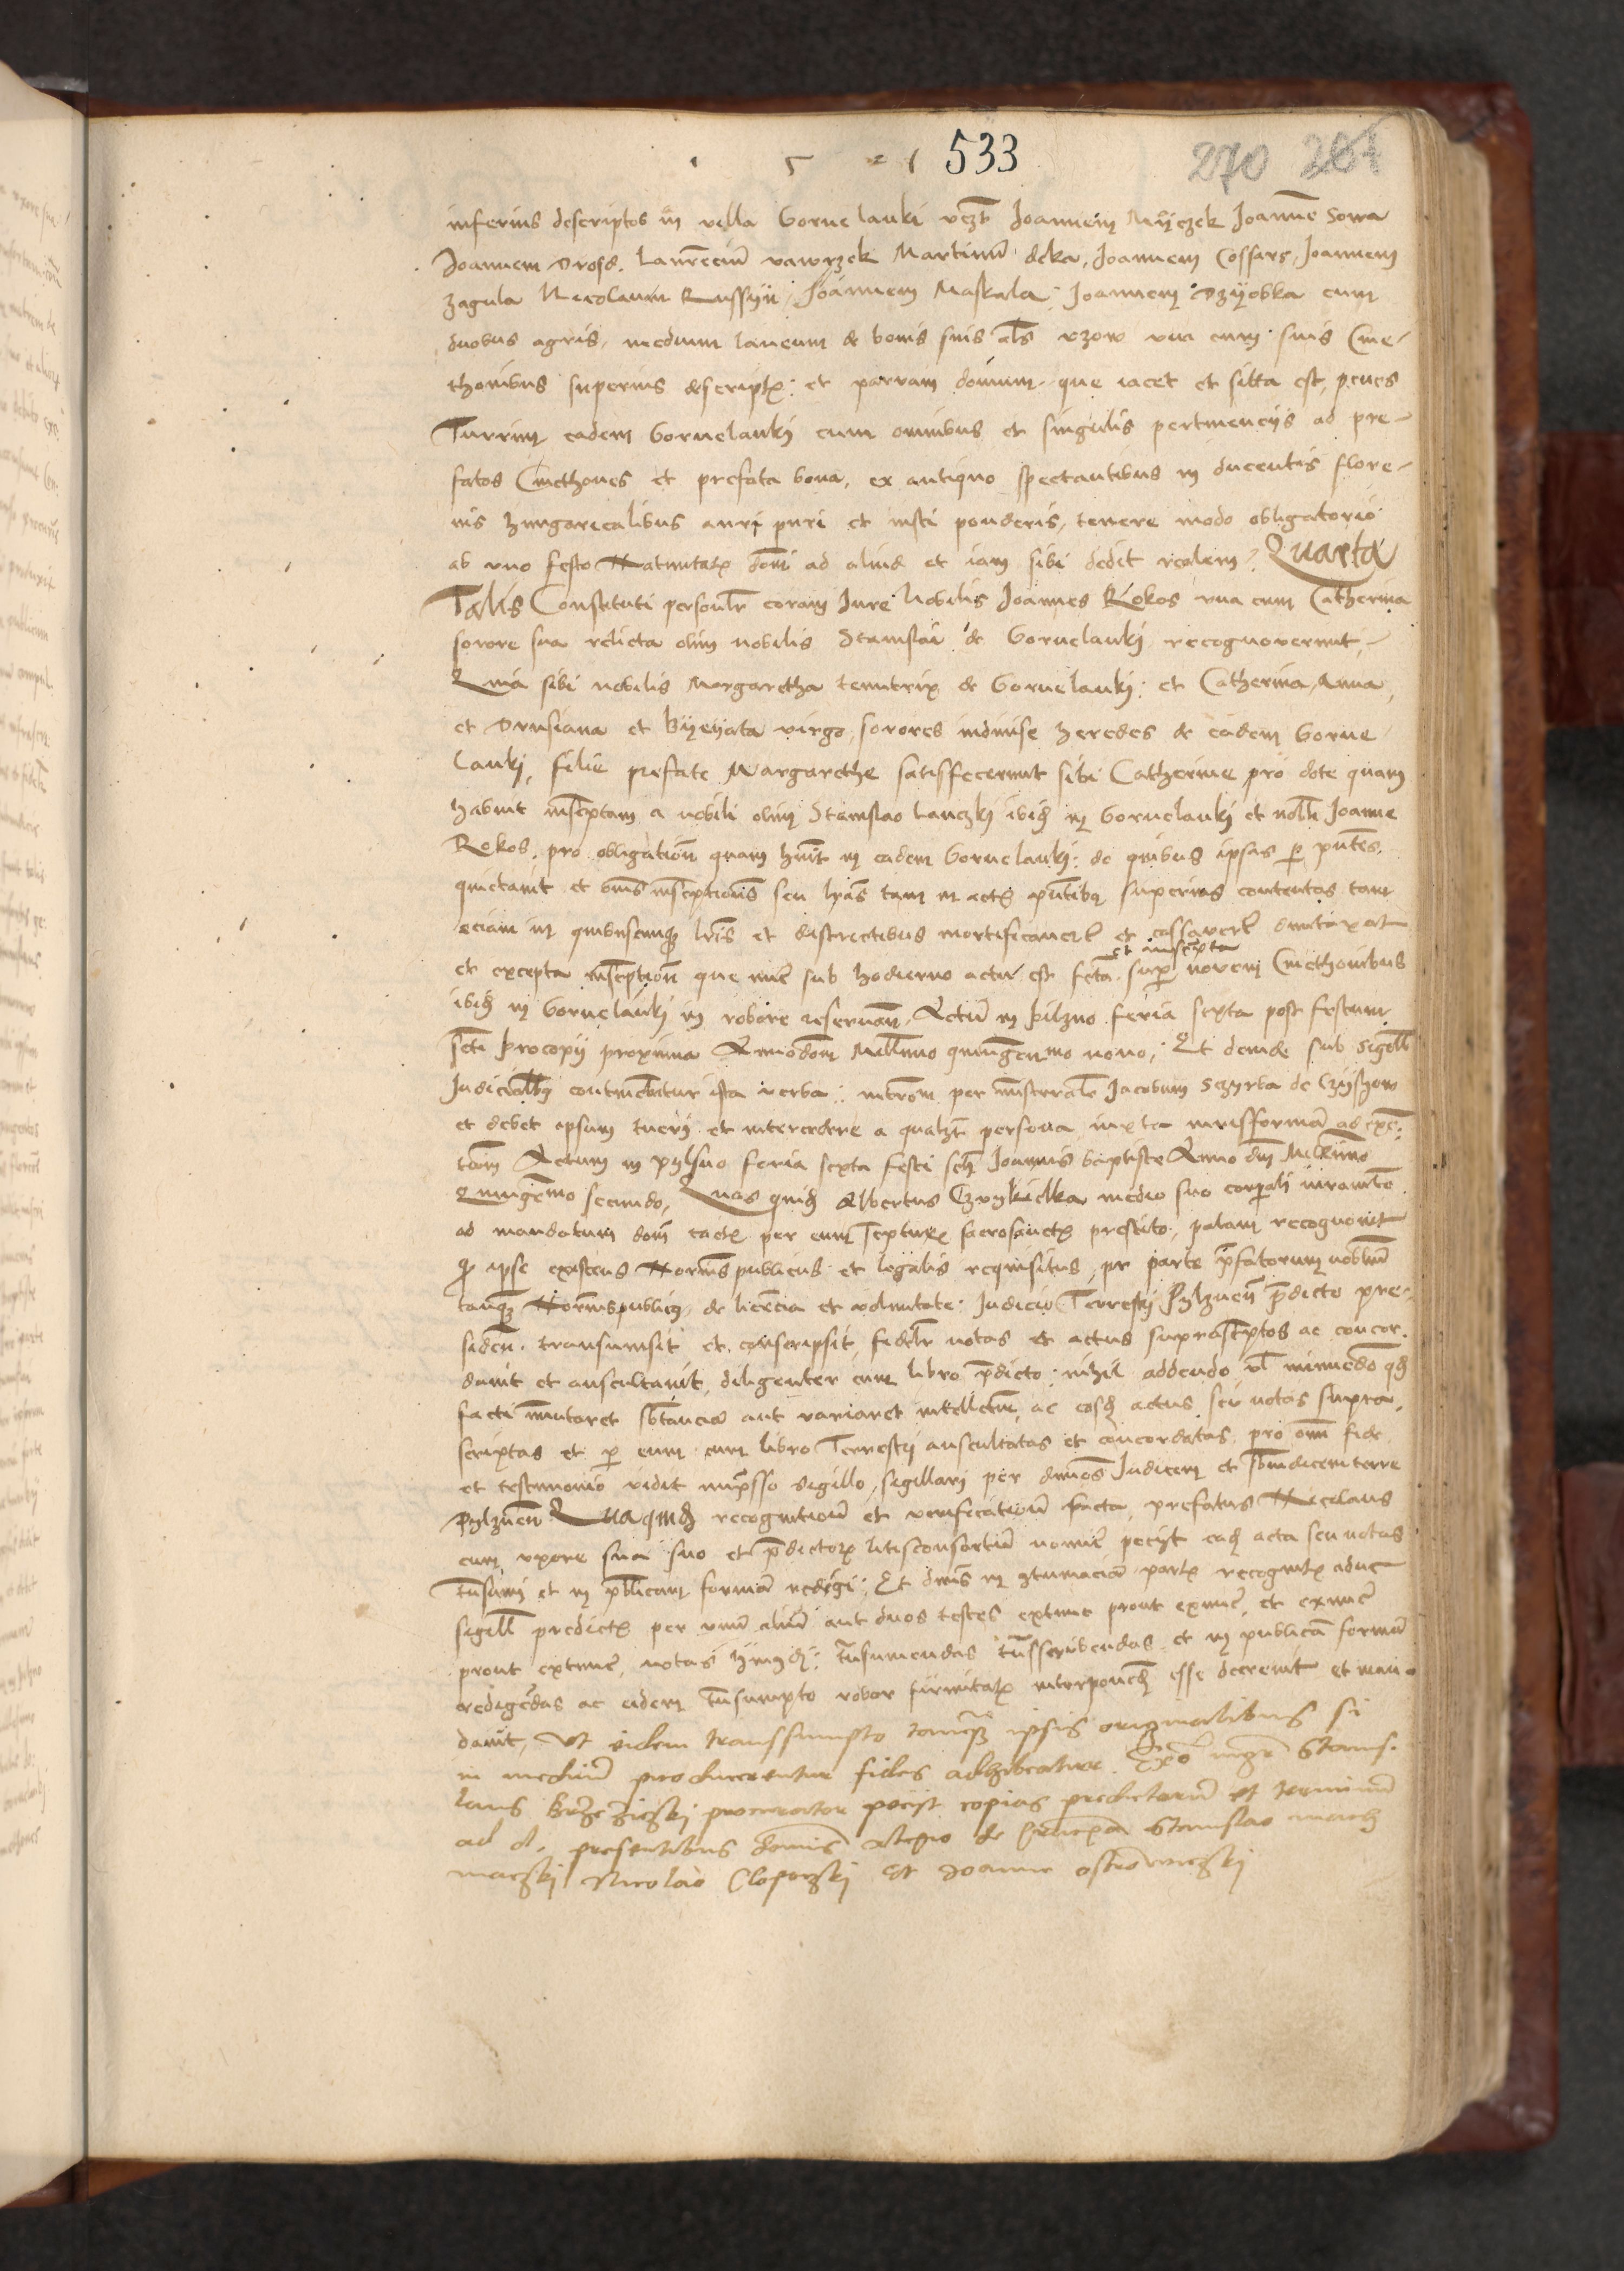 1 5 21 533 270 261
inferius descriptos in villa Gornelanki vczt Joannem Myczek Joanne Sowa
Joannem Drosd, Laurēciu vawrzek Martinu deka, Joannem Cossars, Joannem
zagula Nicolaum Russyn, Joannem Maskala, Joannem Dzyobka cum
duobus agris, medium laneum de bonis suis als vzow una cum suis Cme-
thonibus superius descriptis: et parvam domum que iacet et sitta est, penes
Turrim eadem Gornelanki cum omnibus et singulis pertinenciis ad pre-
fatos Cmethones et prefata bona, ex antiquo spectantibus in ducentis flore-
nis hungaricalibus auri puri et iusti ponderis, tenere modo obligatorio
ab uno festo Natiuitatis domi ad aliud et iam sibi dedit realem. Quarta
Talis Constituti personlr coram Jure Nobilis Joannes Rokos una cum Catherina
sorore sua relicta olim nobilis Stanislai de Gornelanki recognoverunt,
Quia sibi nobilis Margaretha tenutrix de Gornelanki: et Catherina, Anna,
et Drusiana et Byeyata virgo, sorores indivise heredes de eadem Gorne
lanki, filie prefate Margarethe satisfecerunt sibi Catherine pro dote quam
habuit inscptam a nobili olim Stanislao lanczki ibid in Gornelanki et nobli Joanne
Rokos, pro obligation quam huit in eadem Gornelanki: de quibus ipsas p pntes
quictavit et oms inscptiones seu lras tam in actis pntibus superius contentas tam
eciam in quibuscumq lris et districtibus mortificavert et cassavert dumtaxat
et inscripta
et excepta inscption que nunc sub hodierno actu est fcta sup novem Cmethonibus
ibid in Gornelanki in robore reservan. Actu in pilzno feria sexta post festum
scti procopii proxima Anno dom Millmo quingen mo nono, Et deinde sub sigill
Judicialibus continebatur ista verba: introm per ministeriale Jacobum sczyrba de Czyssow
et debet ipsum tueri et intercedere a qualzt persona iuxta iurisformam ad exc-
tom Actum in pylsno feria sexta festi scti Joannis baptiste Anno dni Millimo
Quingemo secundo, Quas quid Albertus Czvykielka medio suo corporali iuramento
ad mandatum dom tactis per eum scripturis sacrosanctis prestito, palam recognovit
q ipse existens Notarius publicus et legalis requisitus, pr parte pfatorum nobilium
tanq Notarius public de licencia et volutate Judicio Terrestri Pylznen pdicto pre-
siden. transumsit et conscripsit, fidelr notas et actus suprascriptos ac concor-
davit et auscultavit, diligenter cum libro pdicto nihil addendo vl minuedo qd
facti mutaret sbtancia aut variaret intellectum, ac eosd actus seu notas supra
scriptas et p eum cum libro Terrestri auscultatas et concordatas, pro omi fide
et testimonio vidit impresso sigillo, sigillari per dnos Judicem et sbiudicem terre
Pylznen. Qua quid recognitione et verificatione facta, prefatus Nicolaus
cum uxore sua suo et pdictor litisconsortiu nomine peciit ead acta seu notas
tnsumi et in pblicam forma redigi: Et dnus in contumacia partis recognitis aduc
sigill predictis per unu aliu aut duos testes extunc prout exnunc, et exnunc
prout extunc, notas huiusdi: tnsumendas tnsscribendas et in publica forma
redigedas ac eidem tnsumpto robor firmitatis interponend esse decrevit et man-
davit, Ut eidem transsumpto tamq ipsis originalibus si
in mediu producerentur fides adhibeatur. Ex nge Stanis-
laus Brzezniczki procurator peciit copias predictaru et terminu
ad d. presentibus domis Alexio de Stanislao mach
maczki Nicolao Cloposki et Joanne ostrowieczki